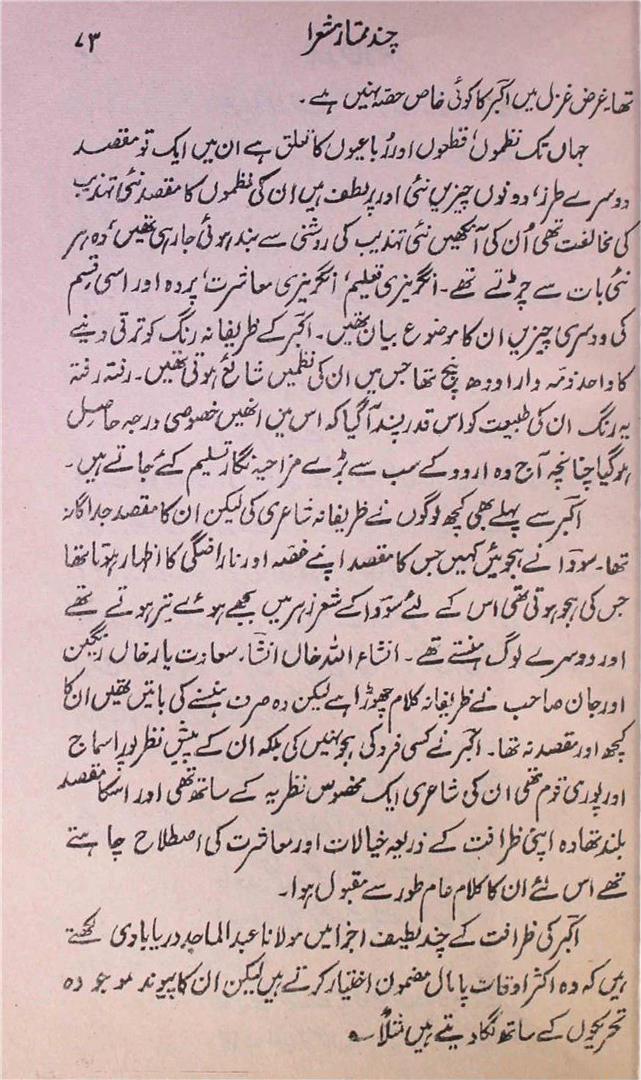 چند ممتاز شعرا ۷۳
تھا۔ غرض غزل میں اکبر کا کوئی خاص حصہ نہیں ہے۔
جہاں تک نظموں، قطعوں اور رباعیوں کا تعلق ہے ان میں ایک تو مقصد
دوسرے طرز، دونوں چیزیں نئی اور پر لطف ہیں ان کی نظموں کا مقصد نئی تہذیب
کی مخالفت تھی اُن کی آنکھیں نئی تہذیب کی روشنی سے بند ہوئی جا رہی تھیں، وہ ہر
نئی بات سے چڑتے تھے۔ انگریزی تعلیم، انگریزی معاشرت، پردہ اور اسی قسم
کی دوسری چیزیں ان کا موضوع بیان تھیں۔ اکبر کے ظریفانہ رنگ کو ترقی دینے
کا واحد ذمہ دار اودھ پنچ تھا جس میں ان کی نظمیں شائع ہوتی تھیں۔ رفتہ رفتہ
یہ رنگ ان کی طبیعت کو اس قدر پسند آ گیا کہ اس میں انھیں خصوصی درجہ حاصل
ہو گیا چنانچہ آج وہ اردو کے سب سے بڑے مزاحیہ نگار تسلیم کئے جاتے ہیں۔
اکبر سے پہلے بھی کچھ لوگوں نے ظریفانہ شاعری کی لیکن ان کا مقصد جداگانہ
تھا۔ سودا نے ہجویں کہیں جس کا مقصد اپنے غصہ اور ناراضگی کا اظہار ہوتا تھا
جس کی ہجو ہوتی تھی اس کے لئے سودا کے شعر زہر میں بجھے ہوئے تیر ہوتے تھے
اور دوسرے لوگ ہنستے تھے۔ انشاء اللہ خاں انشا، سعادت یار خاں رنگین
اور جان صاحب نے ظریفانہ کلام چھوڑا ہے لیکن وہ صرف ہنسنے کی باتیں تھیں ان کا
کچھ اور مقصد نہ تھا۔ اکبر نے کسی فرد کی ہجو نہیں کی بلکہ ان کے پیش نظر پورا سماج
اور پوری قوم تھی ان کی شاعری ایک مخصوص نظریہ کے ساتھ تھی اور اسکا مقصد
بلند تھا وہ اپنی ظرافت کے ذریعہ خیالات اور معاشرت کی اصطلاح چاہتے
تھے اس لئے ان کا کلام عام طور سے مقبول ہوا۔
اکبر کی ظرافت کے چند لطیف اجزا میں مولانا عبد الماجد دریابادی لکھتے
ہیں کہ وہ اکثر اوقات پامال مضمون اختیار کرتے ہیں لیکن ان کا پیوند موجودہ
تحریکوں کے ساتھ لگا دیتے ہیں مثلاً